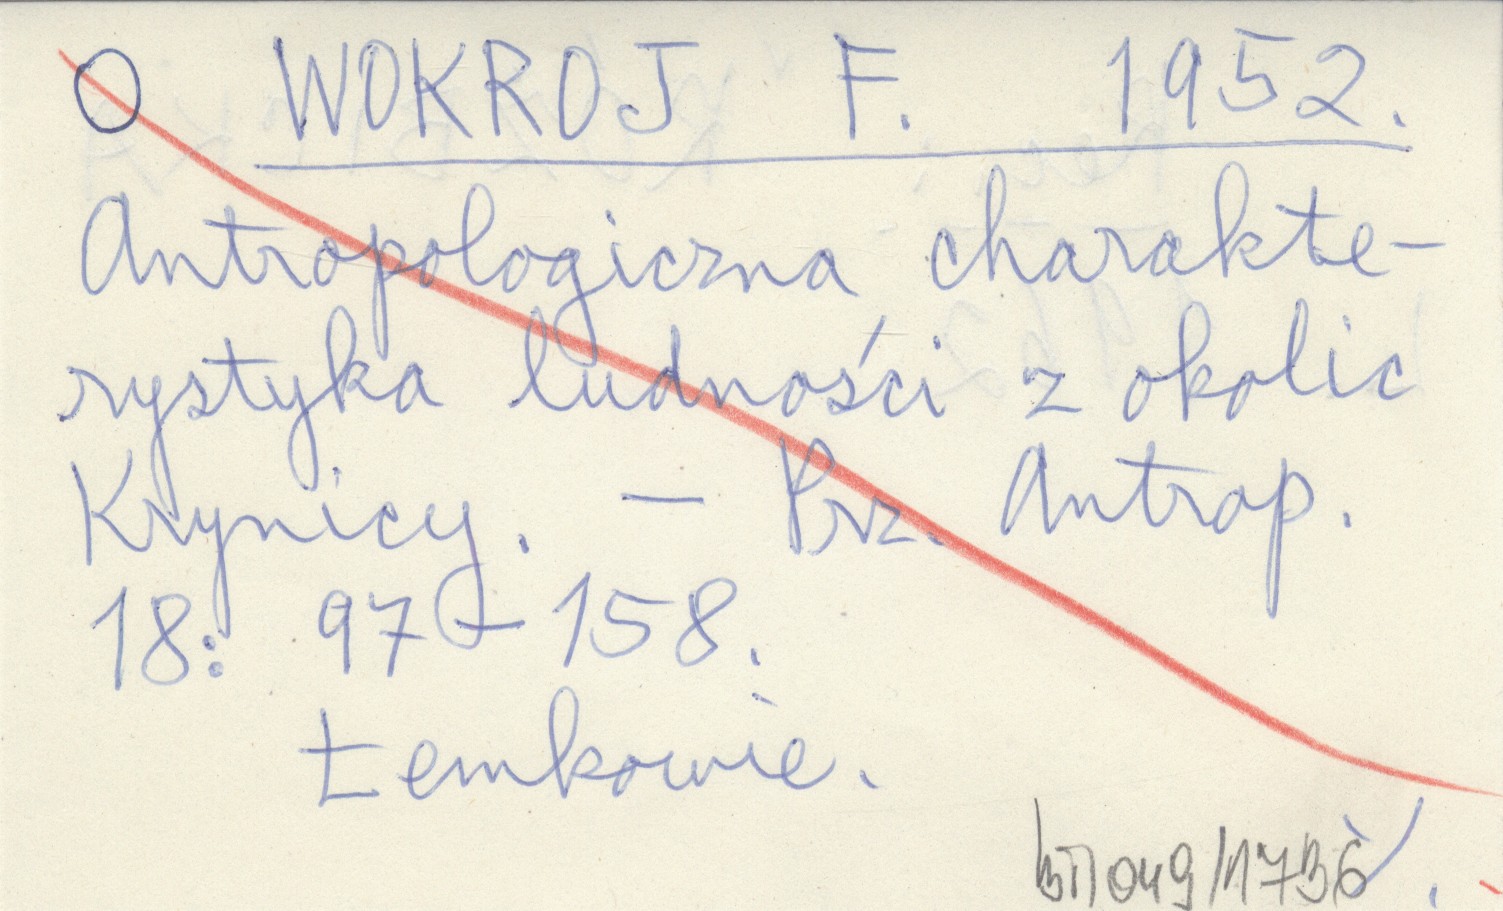 O WOKROJ F. 1952.
Antropologiczna charakte-
rystyka ludności z okolic
Krynicy. — Prz. Antrop.
18: 97-158.
Łemkowie.